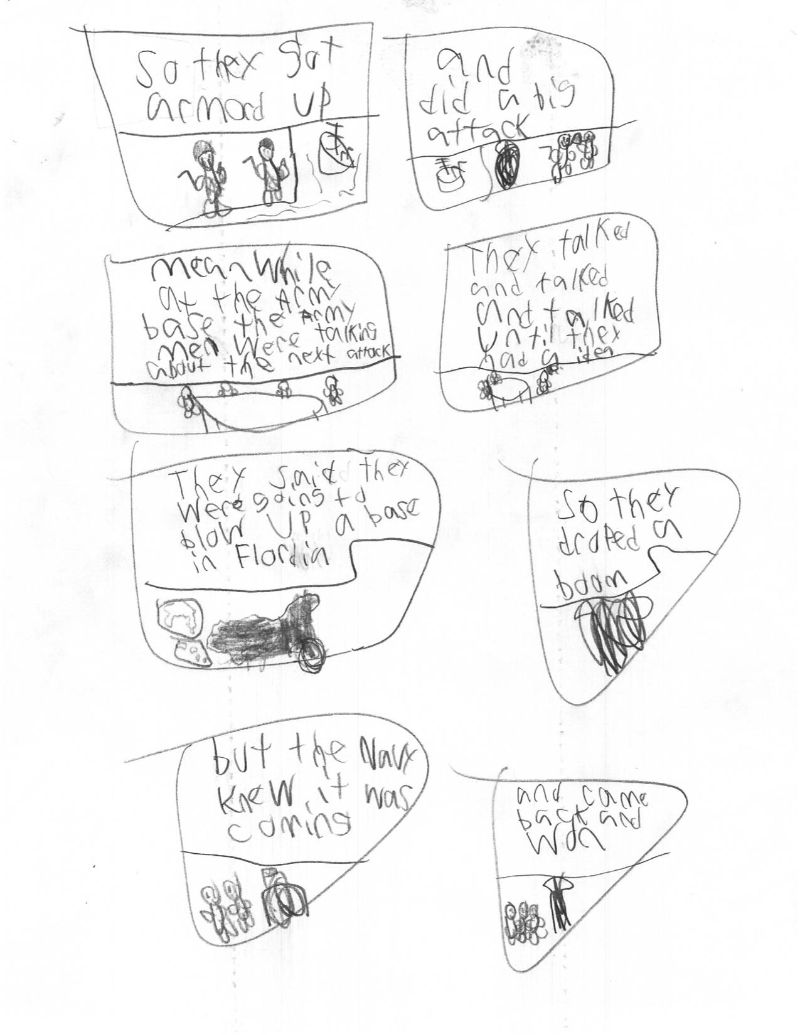 So they got
armord up
and
did a big
attack
meanwhile
at the Army
base the Army
men were talking
about the next attack
They talked
and talked
and talked
until they
had a idea
They said they
were going to
blow up a base
in Flordia
So they
droped a
boom
but the Navy
knew it was
coming
and came
back and
won